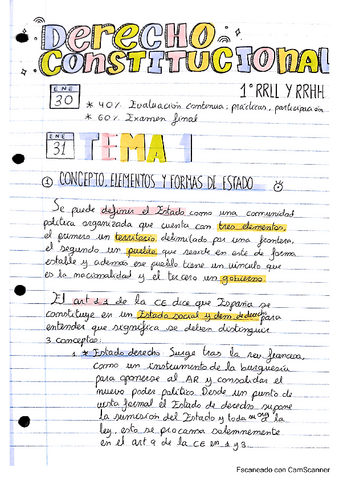 DERECHO
CONSTITUCIONAL
1º RRLL Y RRHH
ENE
30
* 40% Evaluación continua: prácticas, participación
* 60% Examen final
ENE
31
TEMA 1
1 CONCEPTO, ELEMENTOS Y FORMAS DE ESTADO
Se puede definir el Estado como una comunidad
política organizada que cuenta con tres elementos,
el primero un territorio delimitado por una frontera,
el segundo un pueblo que reside en este de forma
estable y además ese pueblo tiene un vínculo que
es la nacionalidad y el tercero un gobierno.
El art 1.1 de la CE dice que España se
constituye en un Estado social y dem de derecho para
entender que significa se deben distinguir
3 conceptos:
1 * Estado derecho Surge tras la rev. francesa,
como un instrumento de la burguesía
para oponerse al AR y consolidar el
nuevo poder político. Desde un punto de
vista formal el Estado de derecho supone
la sumisión del Estado y toda su a la
ley, esto se proclama solemnemente
en el art 9 de la CE en 1 y 3.
Escaneado con CamScanner